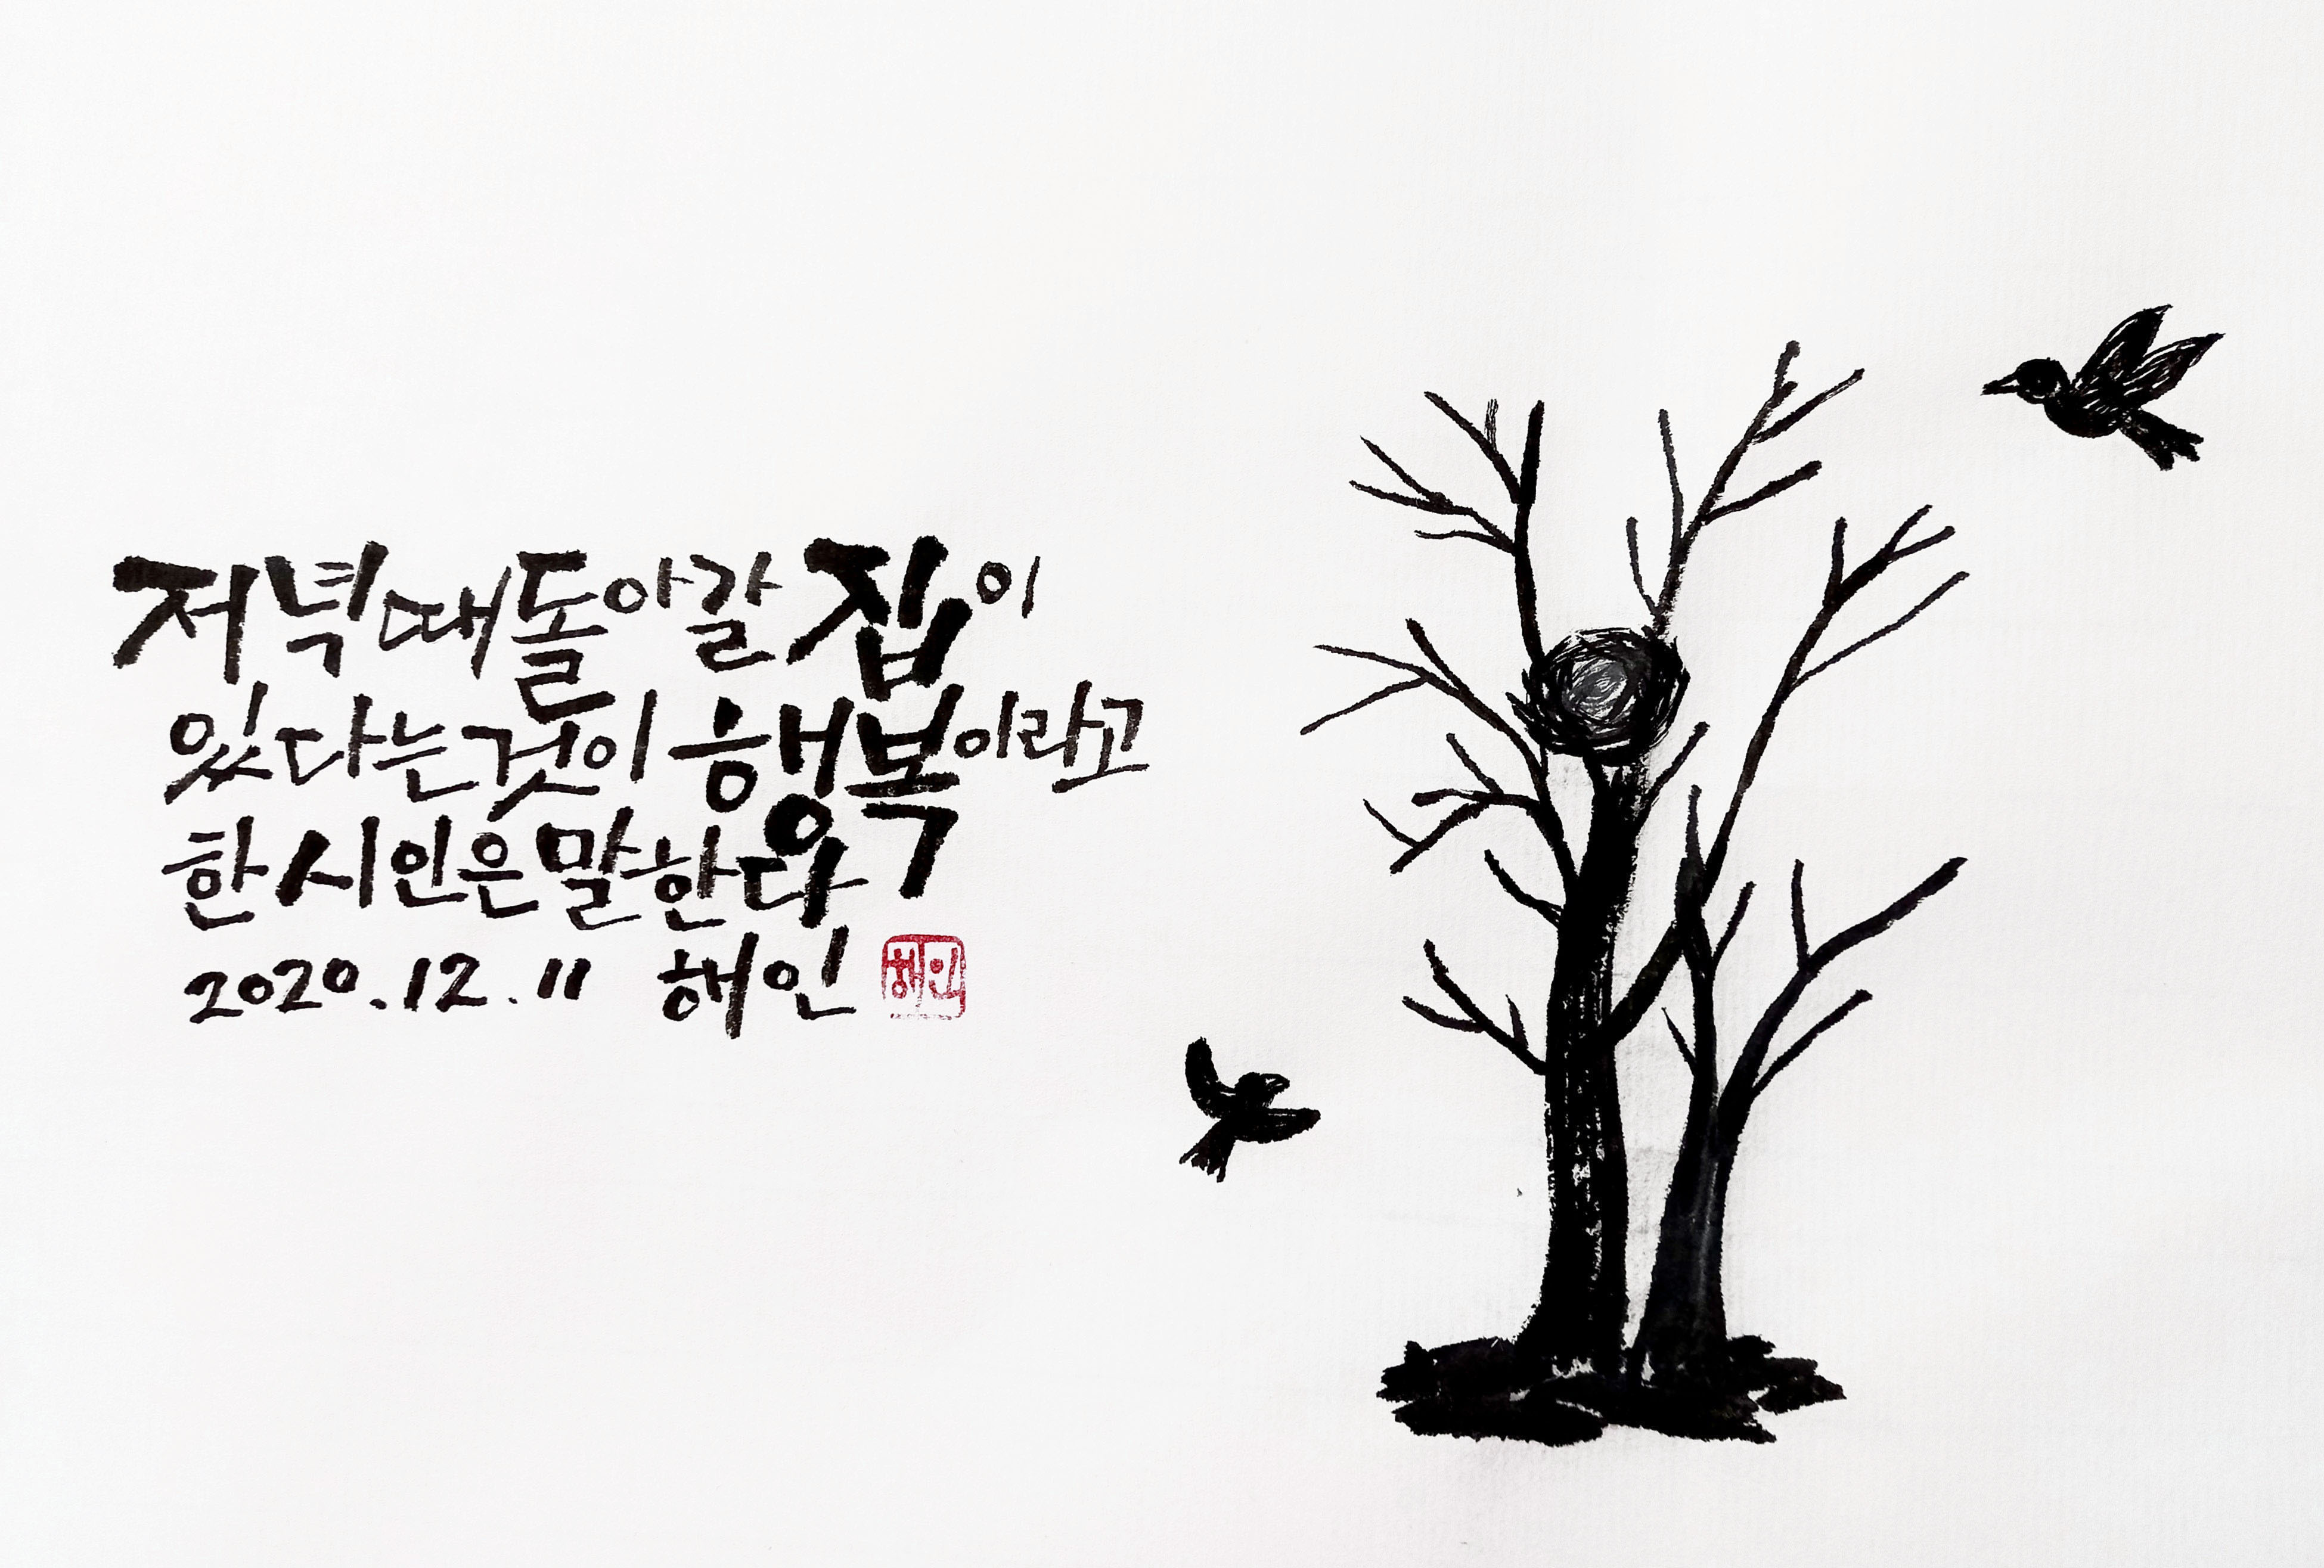 저녁때 돌아갈 집이
있다는 것이 행복이라고
한 시인은 말한다
2020.12.11 해인 해인